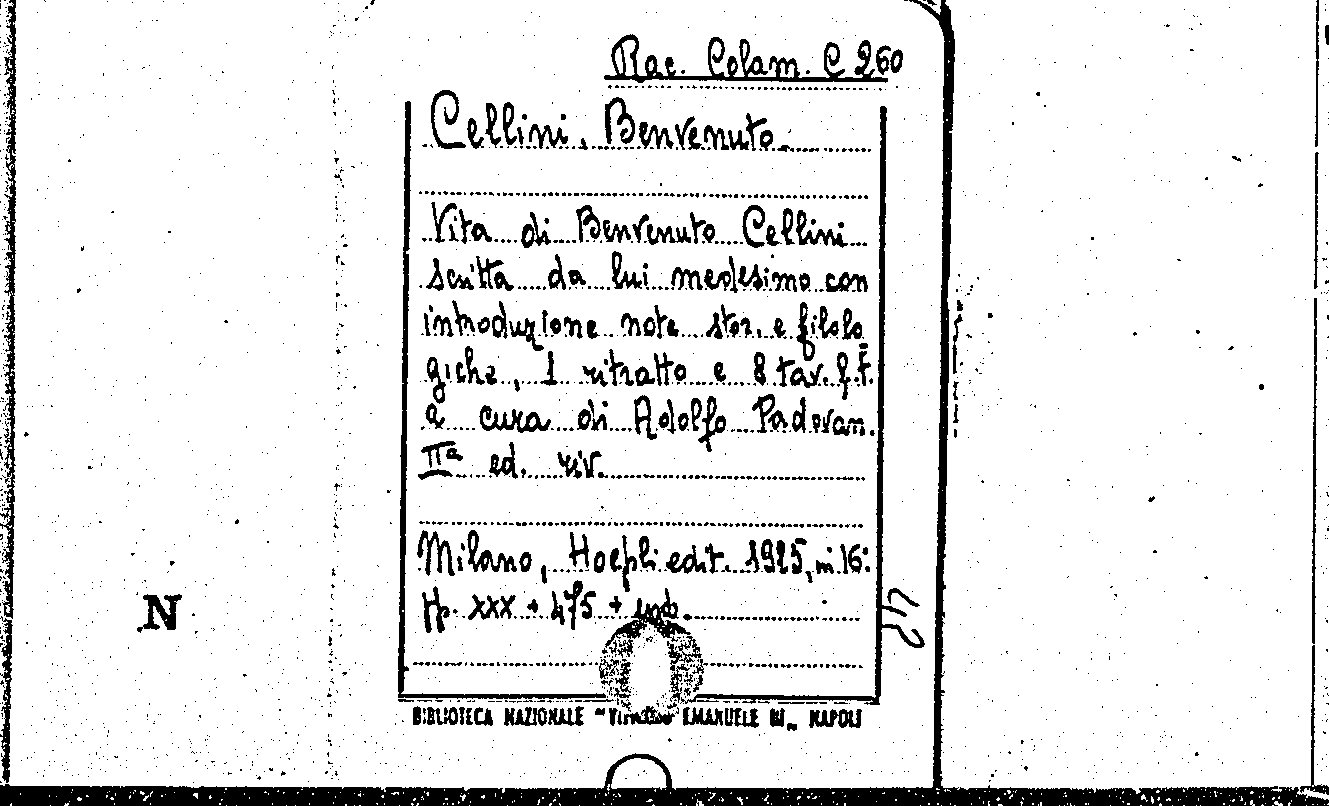 Rac. Colam. C 260
Cellini, Benvenuto.
Vita di Benvenuto Cellini
scritta da lui medesimo con
introduzione note stor. e filolo
giche, 1 ritratto e 8 tav. f.t.
a cura di Adolfo Padovan.
IIª ed. riv.
Milano, Hoepli edit. 1925, in 16°
pp. XXX + 475 + ind.
BIBLIOTECA NAZIONALE "VITTORIO EMANUELE III„ NAPOLI
N